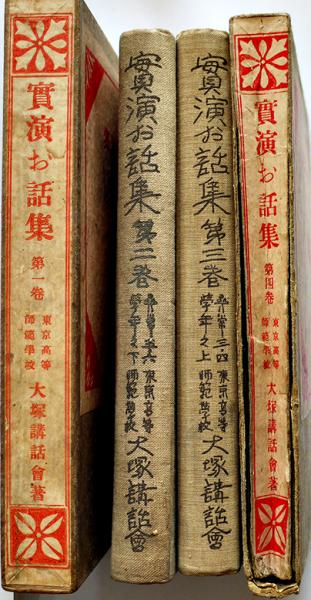 實演お話集
第一卷
東京高等
師範學校
大塚講話會著
實演お話集
第二卷
尋常五六
學年之下
東京高等
師範學校
大塚講話會
實演お話集
第三卷
尋常三四
學年之上
東京高等
師範學校
大塚講話會
實演お話集
第四卷
東京高等
師範學校
大塚講話會著